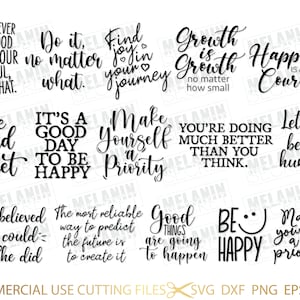 Do it,
no matter
what.
Find
joy in
your
journey
Growth
is
Growth
no matter
how small
IT'S A
GOOD
DAY
TO BE
HAPPY
Make
Yourself
a
Priority
YOU'RE DOING
MUCH BETTER
THAN YOU
THINK.
believed
could
he did
The most reliable
way to predict
the future is
to create it
Good
THINGS
are going
to happen
BE
HAPPY
MERCIAL USE CUTTING FILES SVG DXF PNG EPS
MELAMIN